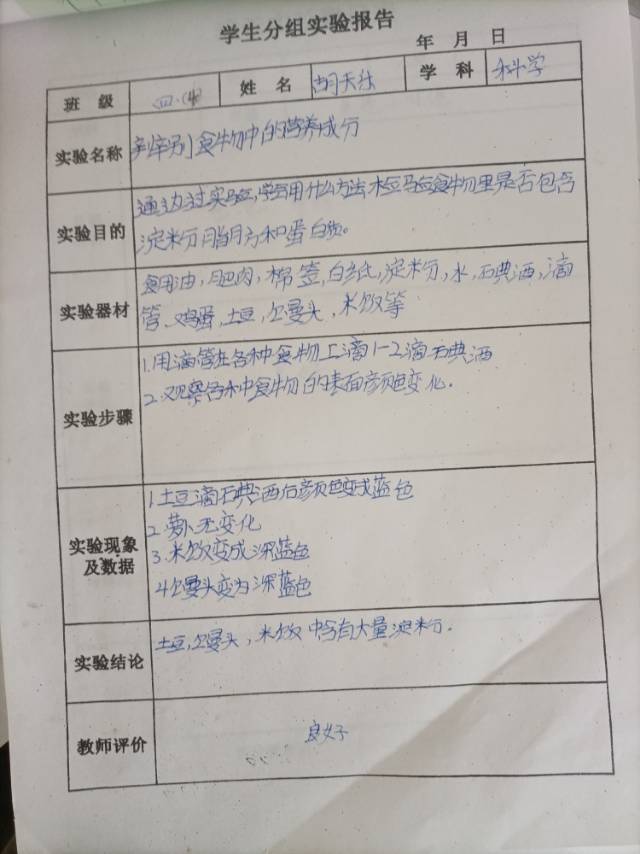 学生分组实验报告
年 月 日
班 级 四.(4) 姓 名 胡天 学 科 科学
实验名称 辨别食物中的营养成分
实验目的 通过实验,学会用什么方法检验食物里是否包含
淀粉脂肪和蛋白质。
实验器材 食用油,肥肉,棉签,白纸,淀粉,水,石典酒,滴
管、鸡蛋,土豆,馒头,米饭等
实验步骤 1.用滴管在各种食物上滴1-2滴石典酒
2.观察各种食物的表面颜色变化.
实验现象及数据 1土豆滴石典酒后颜色变成蓝色
2.萝卜无变化
3.米饭变成深蓝色
4馒头变为深蓝色
实验结论 土豆,馒头,米饭中含有大量淀粉.
教师评价 良好